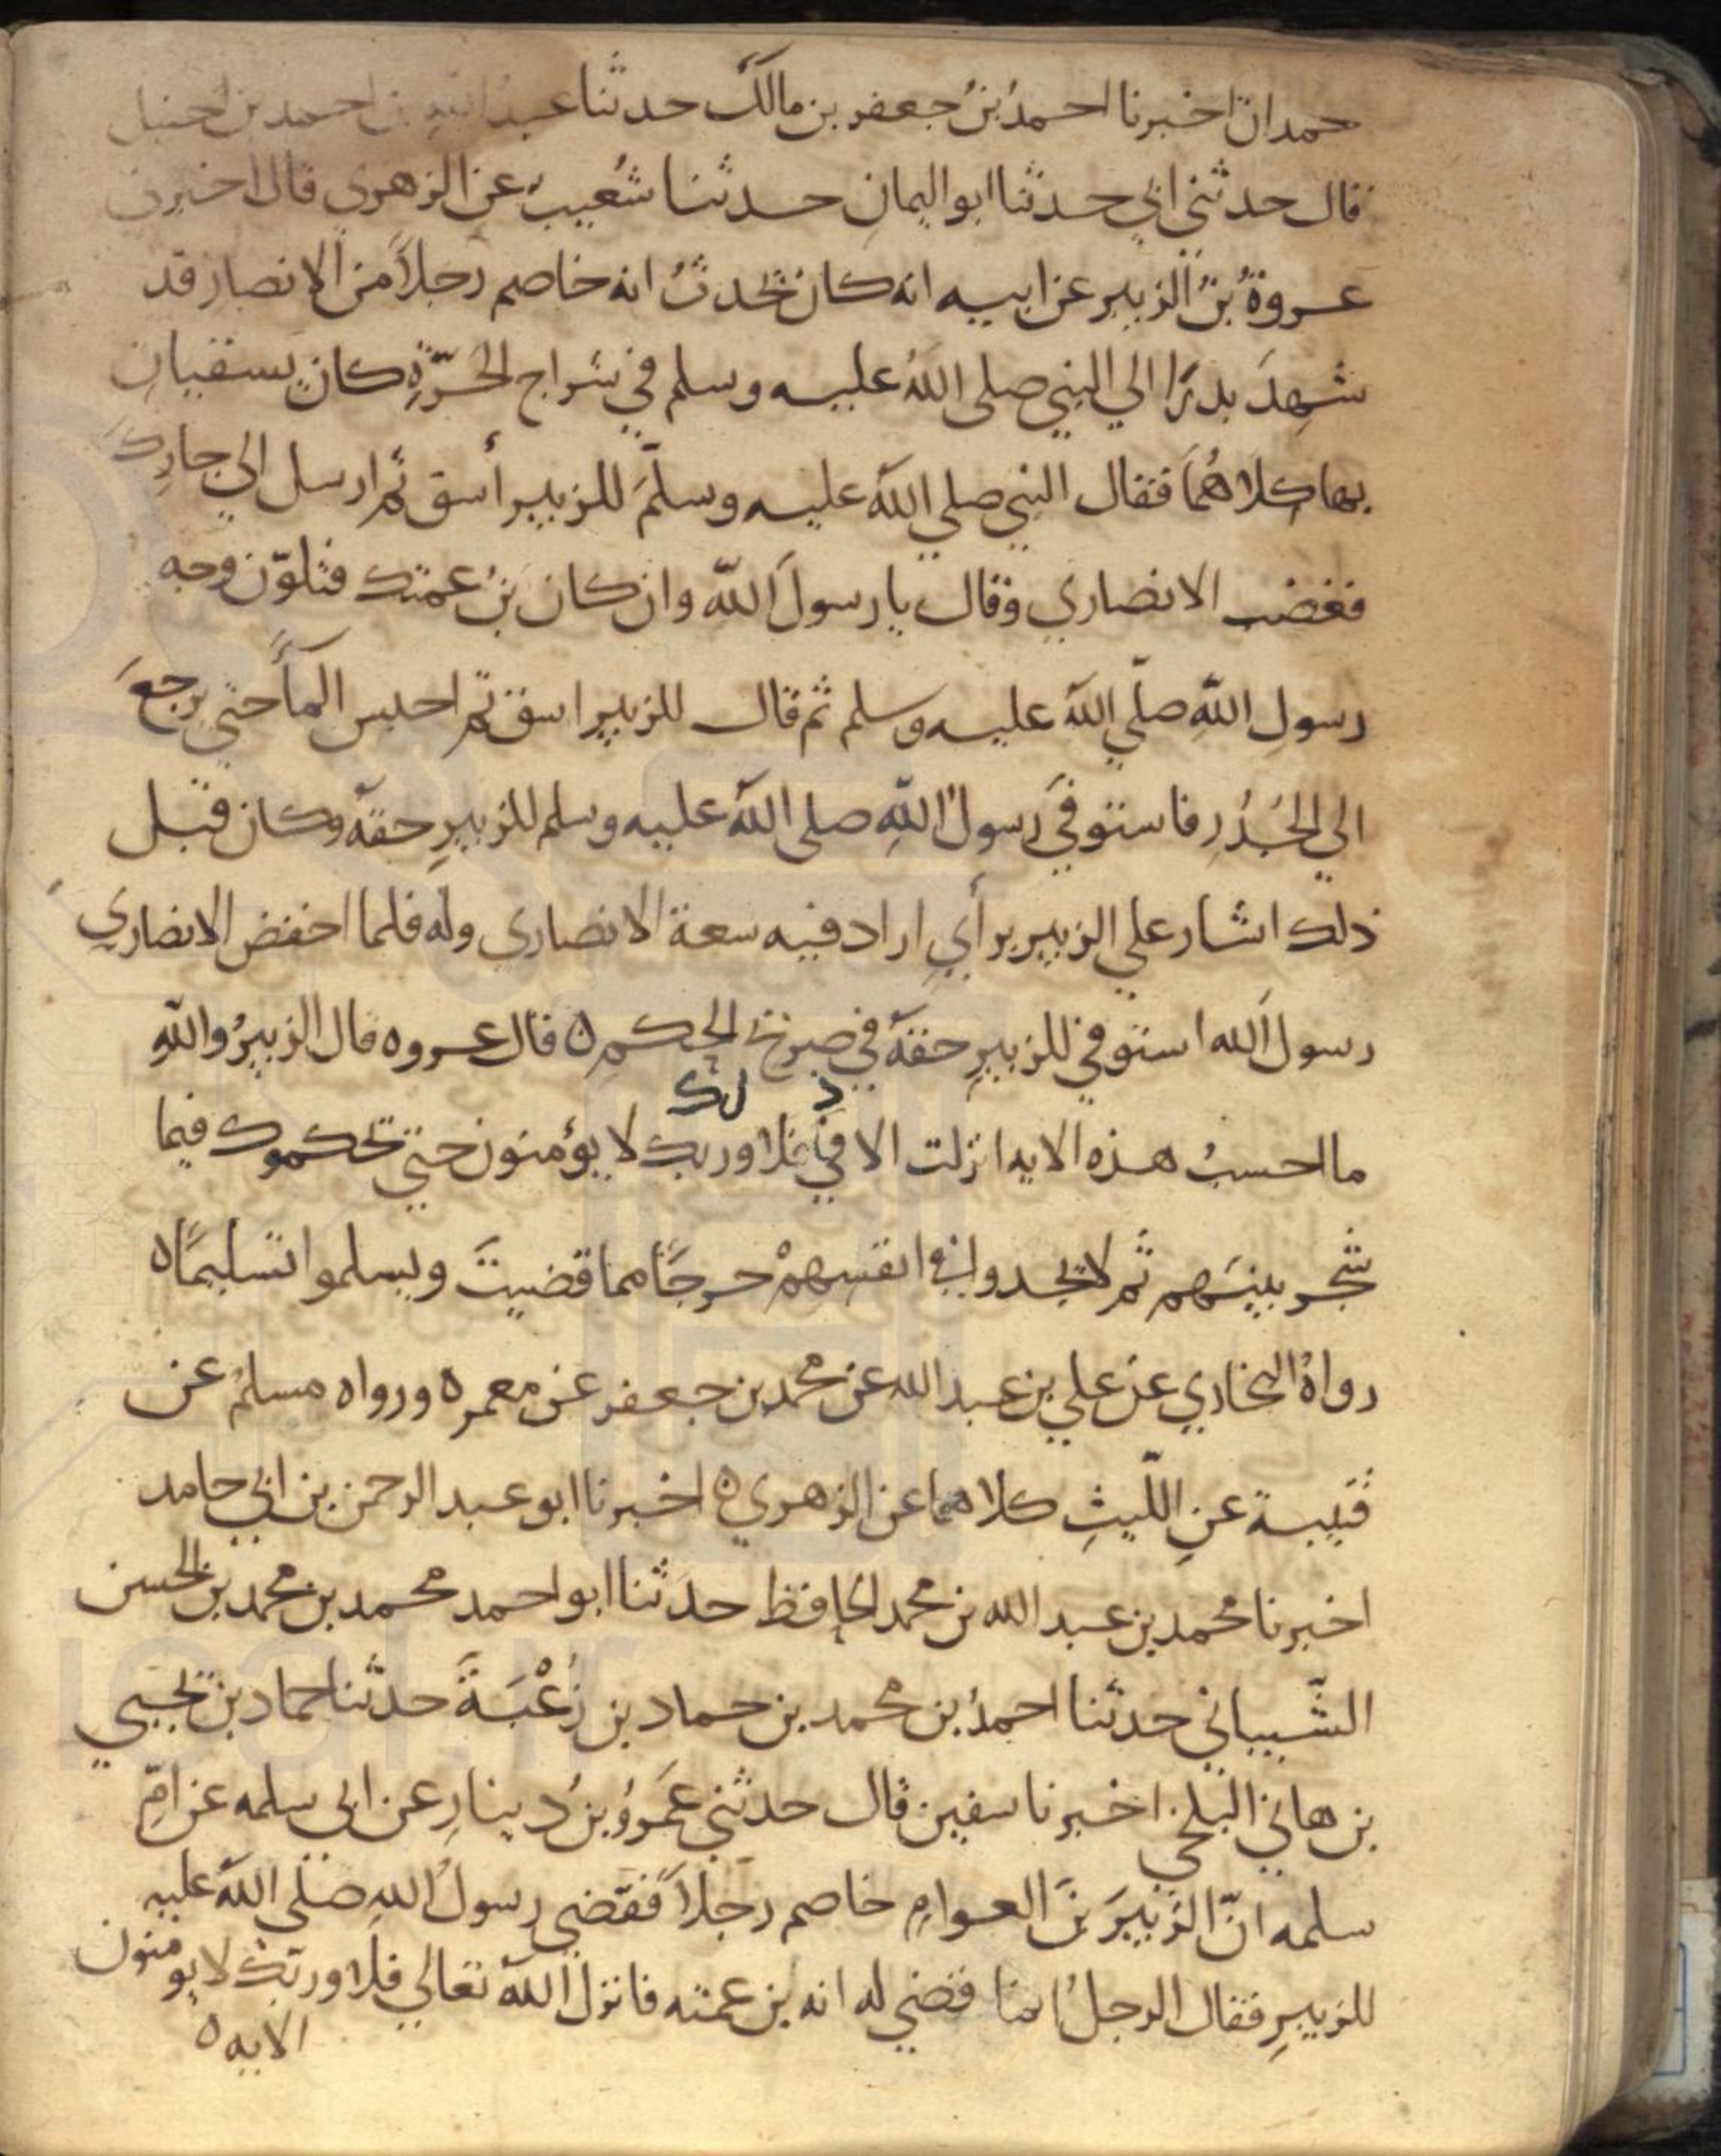 حمدان اخبرنا احمدُ بنُ جعفر بن مالك حدثنا عبد الله بن احمد بن حنبل
قال حدثني ابي حدثنا ابو اليمانِ حدثنا شُعيبٌ عن الزهري قال اخبرني
عروةُ بنُ الزبير عن ابيه انه كان يحدثُ انه خاصم رجلاً من الانصار قد
شهِدَ بدرًا الي النبي صلى اللهُ عليه وسلم في شراج الحَرّةِ كان يسقيانِ
بها كلاهُمَا فقال النبي صلي الله عليه وسلمَ للزبير أسق ثم ارسل الي جارِكَ
فغضب الانصاري وقال يا رسولَ الله وان كان بنُ عمتك فتلوّن وجه
رسولِ اللهِ صلّي الله عليه وسلم ثم قال للزبير اسق ثم احبس المآَ حتي يرجعَ
الي الجُدُرِ فاستوفيَ رسولُ اللهِ صلى الله عليه وسلم للزبيرِ حقهُ وكان قبل
ذلك اشار علي الزبير برأيِ اراد فيه سعة الانصاري وله فلما احفض الانصاري
رسولَ الله استوفي للزبيرِ حقهُ في صريح الحكم ه قال عروه قال الزبيرُ والله
ذ لك
ما احسبُ هذه الايه انزلت الا في فلا وربك لا يؤمنون حتي تحكموك فيما
شجر بينَهم ثم لا يجدوا في انفسهمْ حرجًا مما قضيتَ ويسلموا تسليمًا ه
رواهُ البخاري عن علي بن عبد الله عن محمد بن جعفر عن معمر ه ورواه مسلمُ عن
قتيبة عنِ اللّيثِ كلاهما عن الزهري ه اخبرنا ابو عبد الرحمن بن ابي حامد
اخبرنا محمد بن عبد الله بن محمد الحافظ حدثنا ابو احمد محمد بن محمد بن الحسن
الشّيباني حدثنا احمدُ بن محمد بن حماد بن زُغْبَةَ حدثنا حماد بن يحيي
بن هاني البلخي اخبرنا سفين قال حدثني عَمروُ بنُ دينارِ عن ابي سلمه عن امِّ
سلمه انّ الزبيرَ بنَ العوامِ خاصم رجلاً فقضي رسولُ اللهِ صلي الله عليه
للزبيرِ فقال الرجلُ انما قضي له انه بن عمته فانزل اللهُ تعالي فلا وربّك لا يومنون
الايه ه